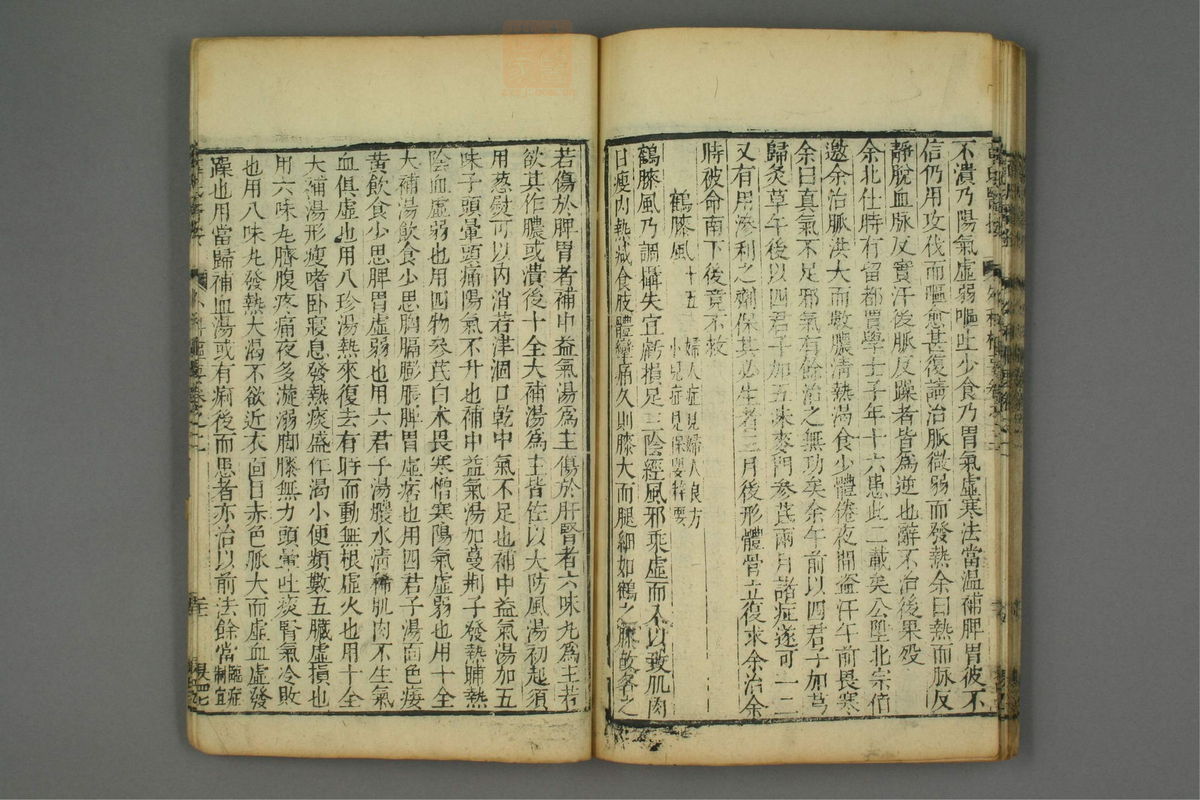 不潰乃陽氣虛弱嘔吐少食乃胃氣虛寒法當温補脾胃彼不
信仍用攻伐而嘔愈甚復請治脈微弱而發熱余曰熱而脈反
靜脫血脈反實汗後脈反躁者皆為逆也辭不治後果歿
余北仕時有留都賈學士子年十六患此二載矣公陞北宗伯
邀余治脈洪大而數膿清熱渴食少體倦夜間盗汗午前畏寒
余曰真氣不足邪氣有餘治之無功矣余午前以四君子加芎
歸炙草午後以四君子加五味麥門參芪兩月諸症遂可一二
又有用滲利之劑保其必生者三月後形體骨立復求余治余
時被命南下後竟不救
鶴膝風十五
婦人症見婦人良方
小兒症見保嬰粹要
鶴膝風乃調攝失宜虧損足三陰經風邪乘虛而入以致肌肉
日瘦内熱減食肢體攣痛久則膝大而腿細如鶴之膝故名之
若傷於脾胃者補中益氣湯為主傷於肝腎者六味丸為主若
欲其作膿或潰後十全大補湯為主皆佐以大防風湯初起須
用葱熨可以内消若津涸口乾中氣不足也補中益氣湯加五
味子頭暈頭痛陽氣不升也補中益氣湯加蔓荆子發熱晡熱
陰血虛弱也用四物參芪白朮畏寒憎寒陽氣虛弱也用十全
大補湯飲食少思胸膈膨脹脾胃虛痞也用四君子湯面色痿
黄飲食少思脾胃虛弱也用六君子湯膿水清稀肌肉不生氣
血俱虛也用八珍湯熱來復去有時而動無根虛火也用十全
大補湯形瘦嗜卧寢息發熱痰盛作渴小便頻數五臟虛損也
用六味丸臍腹疼痛夜多漩溺脚膝無力頭暈吐痰腎氣冷敗
也用八味丸發熱大渴不欲近衣面目赤色脈大而虛血虛發
躁也用當歸補血湯或有痢後而患者亦治以前法餘當臨症
制宜